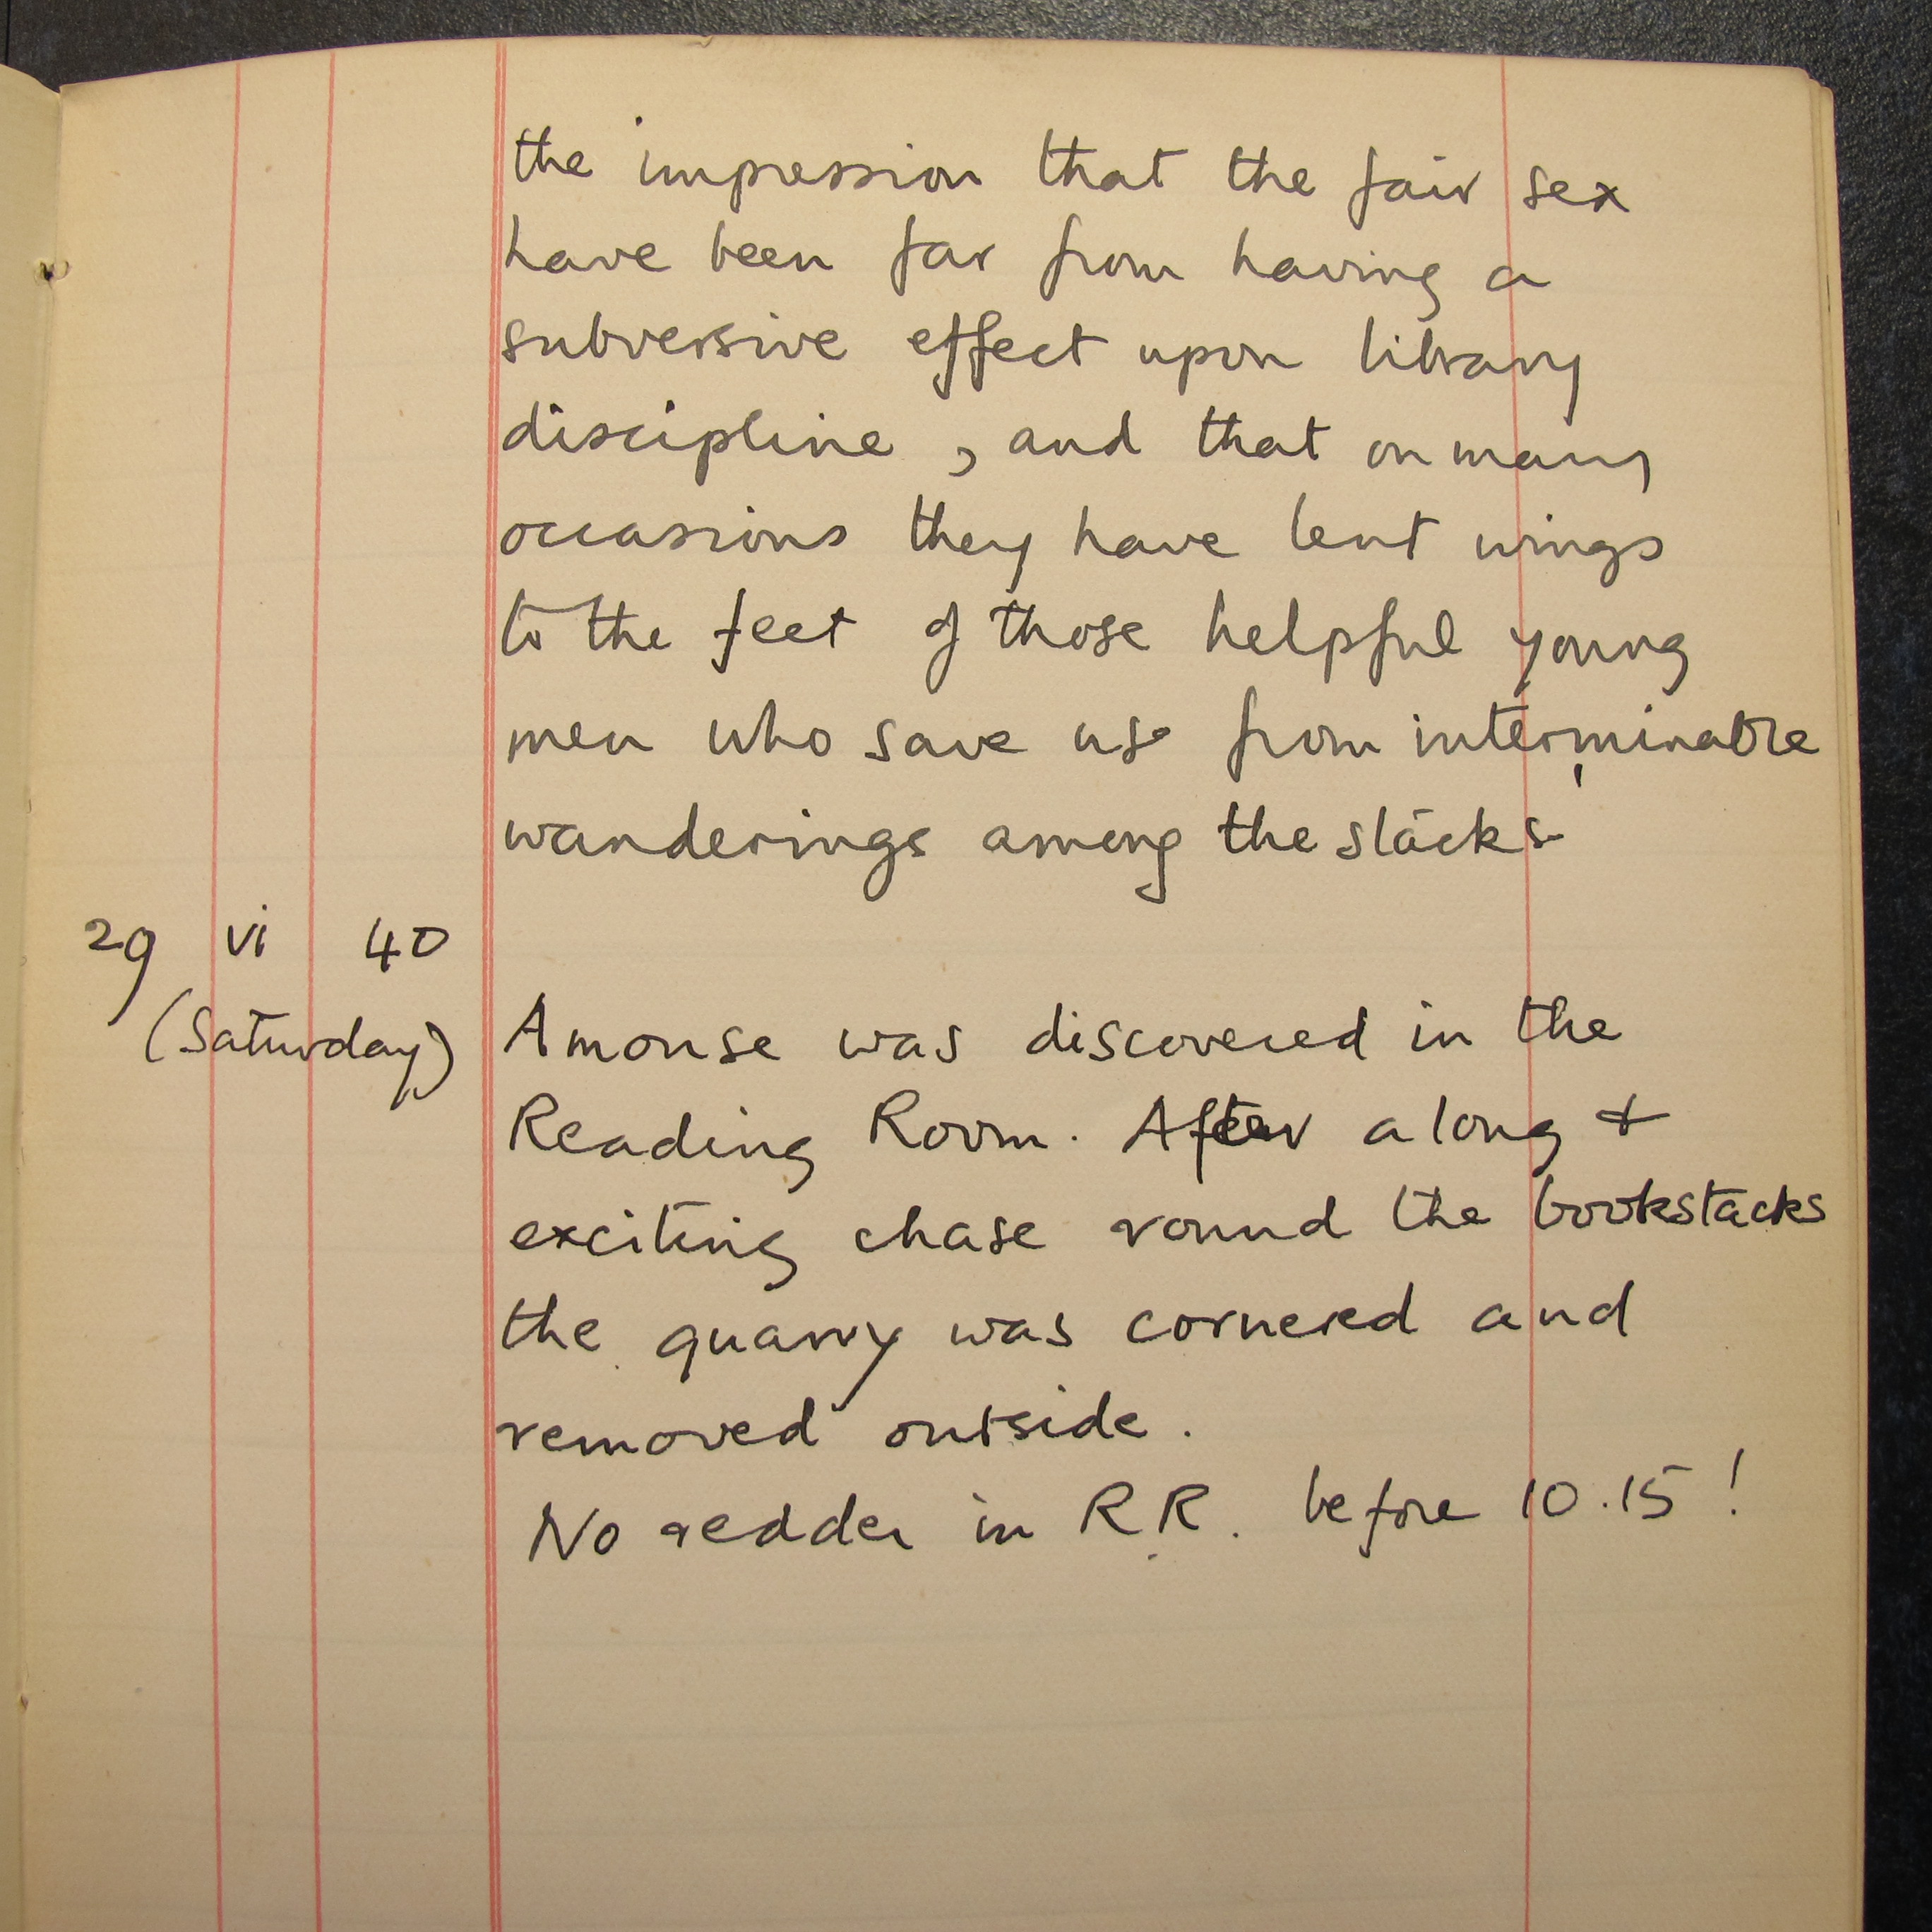 the impression that the fair sex
have been far from having a
subversive effect upon library
discipline, and that on many
occasions they have lent wings
to the feet of those helpful young
men who save us from interminable
wanderings among the stacks
29 vi 40
(Saturday) A mouse was discovered in the
Reading Room. After a long +
exciting chase round the bookstacks
the quarry was cornered and
removed outside.
No reader in RR. before 10.15!